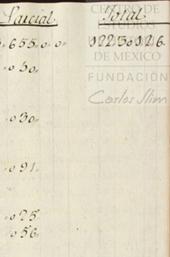 Parcial. Total.
655. 0. 0. 122503126.
030.
030.
091.
025.
056.
CENTRO DE
ESTUDIOS
DE MEXICO
FUNDACIÓN
Carlos Slim